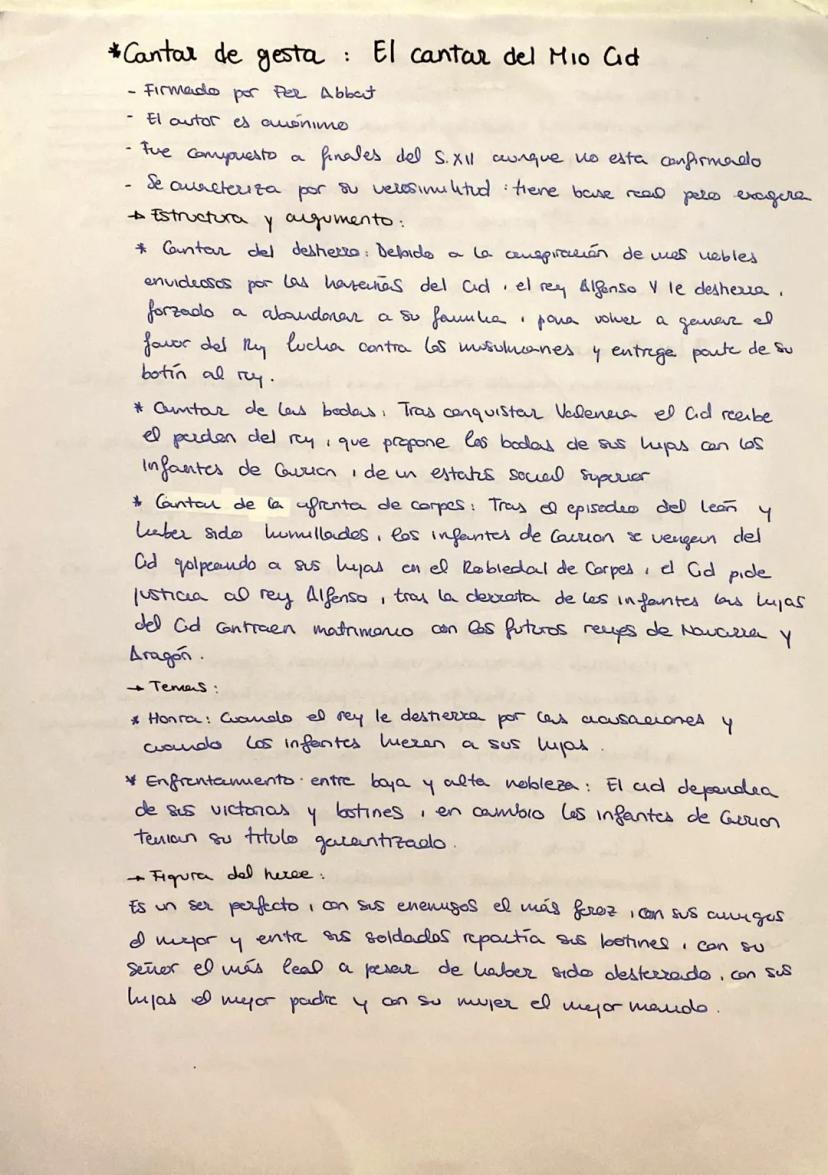 *Cantar de gesta : El cantar del Mio Cid
- Firmado por Per Abbat
- El autor es anónimo
- Fue compuesto a finales del S.XII aunque no esta confirmado
- Se caracteriza por su verosimilitud : tiene base real pero exagera
→ Estructura y argumento :
* Cantar del destierro : Debido a la conspiración de unos nobles
envidiosos por las hazañas del Cid , el rey Alfonso V le destierra ,
forzado a abandonar a su familia , para volver a ganar el
favor del Rey lucha contra los musulmanes y entrega parte de su
botín al rey .
* Cantar de las bodas : Tras conquistar Valencia el Cid recibe
el perdon del rey , que propone las bodas de sus hijas con los
Infantes de Carrion , de un estatus social superior
* Cantar de la afrenta de corpes : Tras el episodio del león y
haber sido humillados , los infantes de Carrion se vengan del
Cid golpeando a sus hijas en el Robledal de Corpes , el Cid pide
justicia al rey Alfonso , tras la derrota de los infantes las hijas
del Cid contraen matrimonio con los futuros reyes de Navarra y
Aragón .
→ Temas :
* Honra : Cuando el rey le destierra por las acusaciones y
cuando los infantes hieren a sus hijas .
* Enfrentamiento entre baja y alta nobleza : El cid dependia
de sus victorias y botines , en cambio los infantes de Carrion
tenian su titulo garantizado .
→ Figura del heroe :
Es un ser perfecto , con sus enemigos el más feroz , con sus amigos
el mejor y entre sus soldados repartía sus botines , con su
señor el más leal a pesar de haber sido desterrado , con sus
hijas el mejor padre y con su mujer el mejor marido .